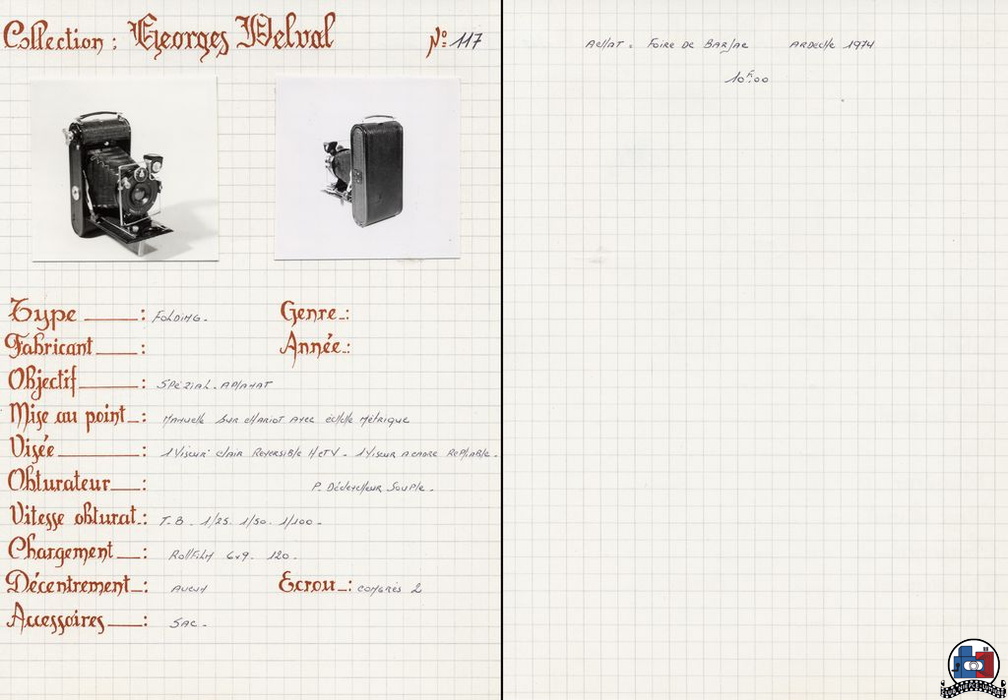 Collection : Georges Delval Nº 117
Type : Folding.
Genre :
Fabricant :
Année :
Objectif : Spézial. Aplanat
Mise au point : Manuelle sur chariot avec échelle métrique
Visée : 1 Viseur clair Reversible H et V. 1 Viseur a cadre Repliable.
Obturateur : P. Déclencheur Souple.
Vitesse obturat. : T. B. 1/25. 1/50. 1/100.
Chargement : Rollfilm 6x9. 120.
Décentrement : Aucun
Ecrou : congrès 2
Accessoires : Sac.
Achat : Foire de Barjac Ardeche 1974
10F.00